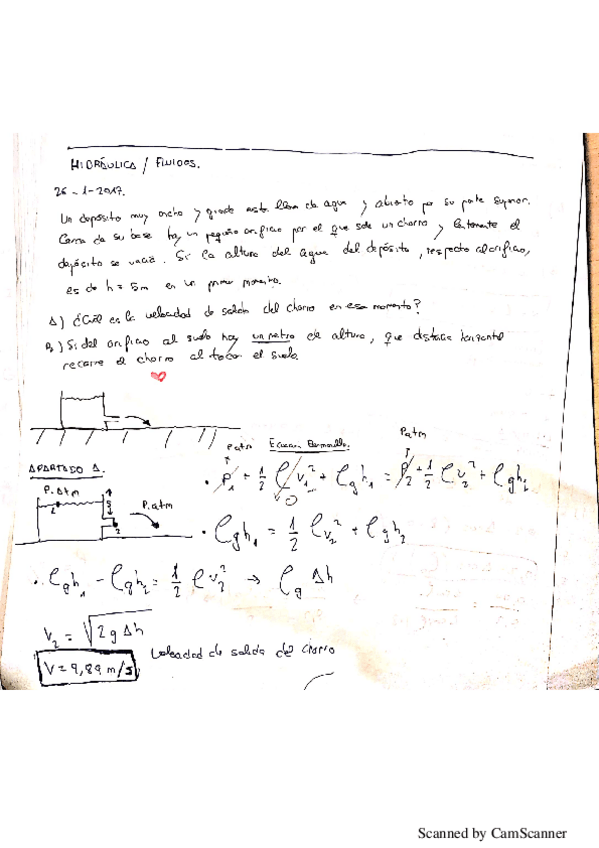 HIDRÁULICA / FLUIDOS.
26 - 1 - 2017.
Un depósito muy ancho y grande está lleno de agua y abierto por su parte superior.
Cerca de su base hay un pequeño orificio por el que sale un chorro y lentamente el
depósito se vacía. Si la altura del agua del depósito, respecto al orificio,
es de h = 5m en un primer momento.
A) ¿Cuál es la velocidad de salida del chorro en ese momento?
B) Si del orificio al suelo hay un metro de altura, que distancia horizontal
recorre el chorro al tocar el suelo.
P.atm Ecuac. Bernoulli. P.atm
APARTADO A.
· P₁ + 1/2 ρ v₁² + ρgh₁ = P₂ + 1/2 ρ v₂² + ρgh₂
0
P.atm
1
5
2
P.atm
· ρgh₁ = 1/2 ρv₂² + ρgh₂
· ρgh₁ - ρgh₂ = 1/2 ρ v₂² → ρg Δh
V₂ = √2gΔh
V = 9,89 m/s Velocidad de salida del chorro
Scanned by CamScanner